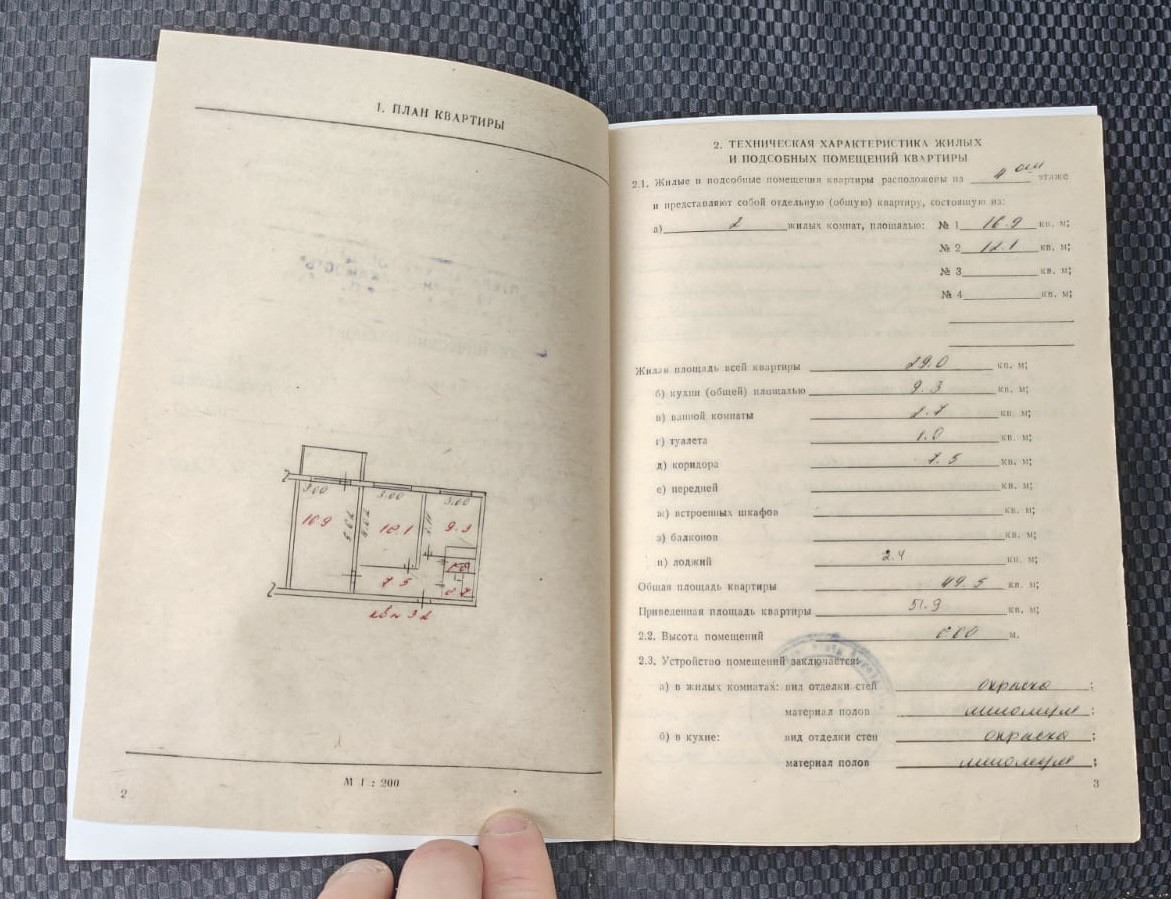 1. ПЛАН КВАРТИРЫ
3.00 3.00 3.00
16.9 12.1 9.3
7.5
М 1 : 200
2
2. ТЕХНИЧЕСКАЯ ХАРАКТЕРИСТИКА ЖИЛЫХ
И ПОДСОБНЫХ ПОМЕЩЕНИЙ КВАРТИРЫ
2.1. Жилые и подсобные помещения квартиры расположены на 4 ом этаже
и представляют собой отдельную (общую) квартиру, состоящую из:
а) 2 жилых комнат, площадью: № 1 16.9 кв. м;
№ 2 12.1 кв. м;
№ 3 кв. м;
№ 4 кв. м;
Жилая площадь всей квартиры 29.0 кв. м;
б) кухни (общей) площадью 9.3 кв. м;
в) ванной комнаты 2.7 кв. м;
г) туалета 1.0 кв. м;
д) коридора 7.5 кв. м;
е) передней кв. м;
ж) встроенных шкафов кв. м;
з) балконов кв. м;
и) лоджий 2.4 кв. м;
Общая площадь квартиры 49.5 кв. м;
Приведенная площадь квартиры 51.9 кв. м;
2.2. Высота помещений м.
2.3. Устройство помещений заключается:
а) в жилых комнатах: вид отделки стен окраска ;
материал полов линолеум ;
б) в кухне: вид отделки стен окраска ;
материал полов линолеум ;
3